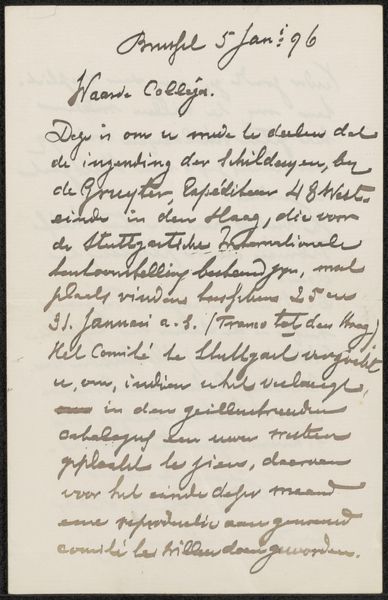 Brussel 5 Jani 96
Waarde Collega.
Deze is om u mede te deelen dat
de inzending der schilderyen, by
de Gruyter, Expéditeur 48 West-
einde in den Haag, die voor
de Stuttgartsche Internationale
tentoonstelling bestemd zyn, moet
plaats vinden tusschen 25 en
31. Januari a.s. (Franco tot den Haag)
Het Comité te Stuttgart verzoekt
u, om, indien u het verlangt,
in den geillustreerden
catalogus een uwer werken
geplaatst te zien, daarvan
voor het einde dezer maand
eene reproductie aan genoemd
comité te willen doen geworden.